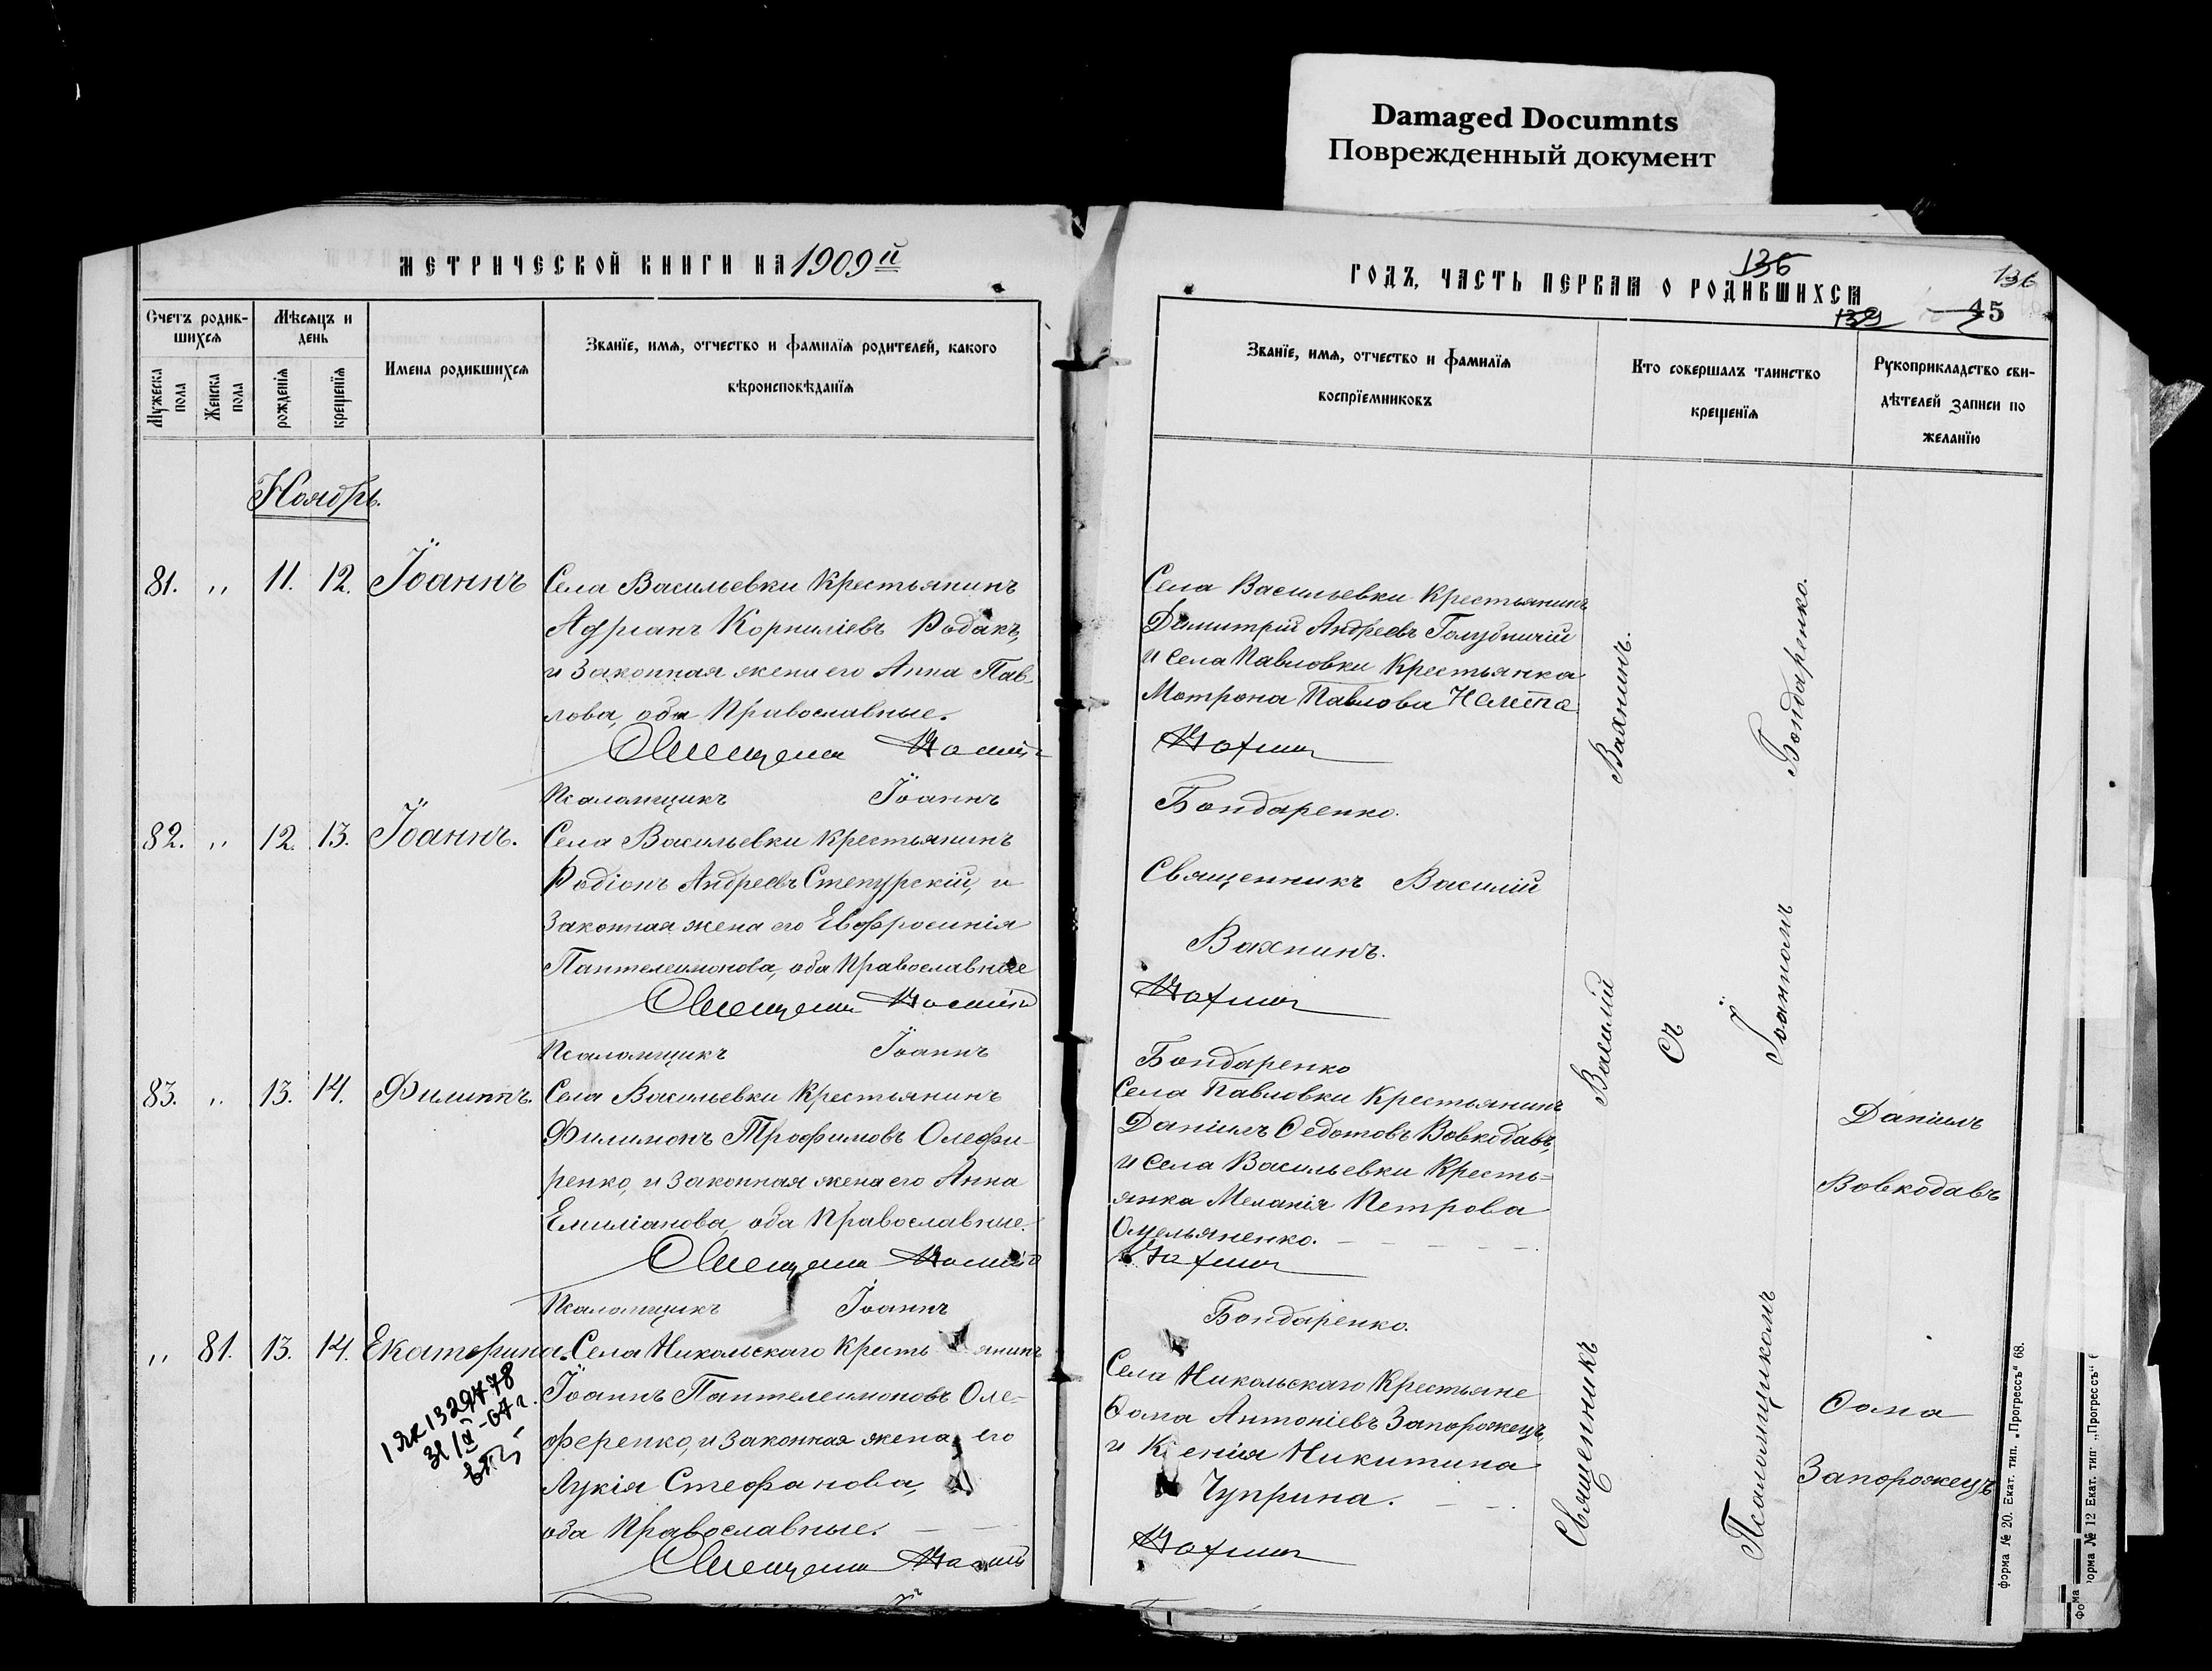 Damaged Documnts
Поврежденный документ
МЕТРИЧЕСКОЙ КНИГИ НА 1909й
Счетъ родив-
шихся
Мужеска пола
Женска пола
Мѣсяцъ и
день
рожденія
крещенія
Имена родившихся
Званіе, имя, отчество и фамилія родителей, какого
вѣроисповѣданія
Ноябрь.
81. „ 11. 12. Іоаннъ
Села Васильевки Крестьянинъ
Адріанъ Корниліевъ Родакъ,
и Законная жена его Анна Пав-
лова, оба Православные.
Священник Василій
Псаломщикъ Іоаннъ
82. „ 12. 13. Іоаннъ.
Села Васильевки Крестьянинъ
Родіонъ Андреевъ Степурскій, и
Законная жена его Евфросинія
Пантелеимонова, оба Православные
Священник Василій
Псаломщикъ Іоаннъ
83. „ 13. 14. Филиппъ.
Села Васильевки Крестьянинъ
Филимонъ Трофимовъ Олефи-
ренко, и Законная жена его Анна
Емиліанова, оба Православные.
Священник Василій
Псаломщикъ Іоаннъ
„ 81. 13. 14. Екатерина.
Села Никольскаго Крестьянинъ
Іоаннъ Пантелеимоновъ Оле-
ференко, и Законная жена его
Лукія Стефанова,
оба Православные.
Священник Василій
ГОДЪ, ЧАСТЬ ПЕРВАЯ О РОДИВШИХСЯ
136
136
139
45
Званіе, имя, отчество и фамилія
воспріемниковъ
Кто совершалъ таинство
крещенія
Рукоприкладство сви-
дѣтелей записи по
желанію
Села Васильевки Крестьянинъ
Димитрій Андреевъ Голубничій
и села Павловки Крестьянка
Мотрона Павлова
Вахнин
Бондаренко.
Священникъ Василій
Вахнинъ.
Вахнин
Бондаренко
Села Павловки Крестьянинъ
Даніилъ Ѳедотовъ Вовкодавъ,
и села Васильевки Кресть-
янка Меланія Петрова
Омельяненко.
Вахнин
Бондаренко.
Села Никольскаго Крестьяне
Ѳома Антоніевъ Запорожецъ,
и Ксенія Никитина
Чуприна.
Вахнин
Священникъ Василій Вахнинъ.
съ
Псаломщикомъ Іоанномъ Бондаренко.
Даніилъ
Вовкодавъ
Ѳома
Запорожецъ
Форма № 20. Екат. тип. „Прогрессъ“ 68.